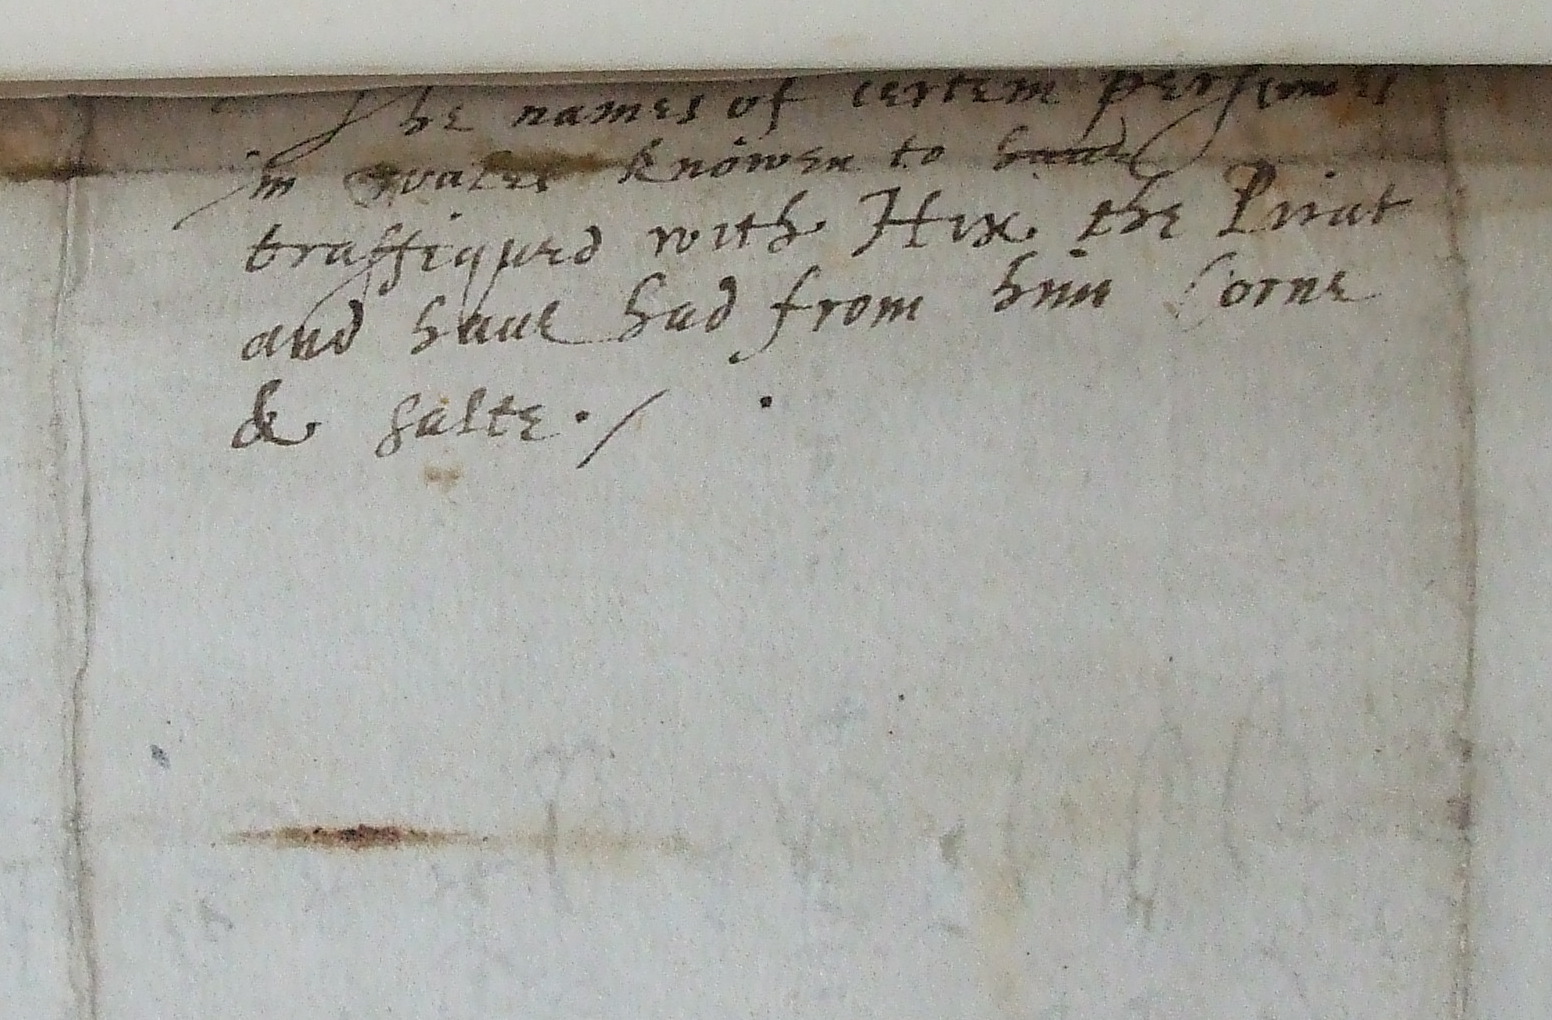 The names of certein persones
in wales knowen to haue
traffiqued with Hix the Pirat
and haue had from him Corne
& salte ./ .